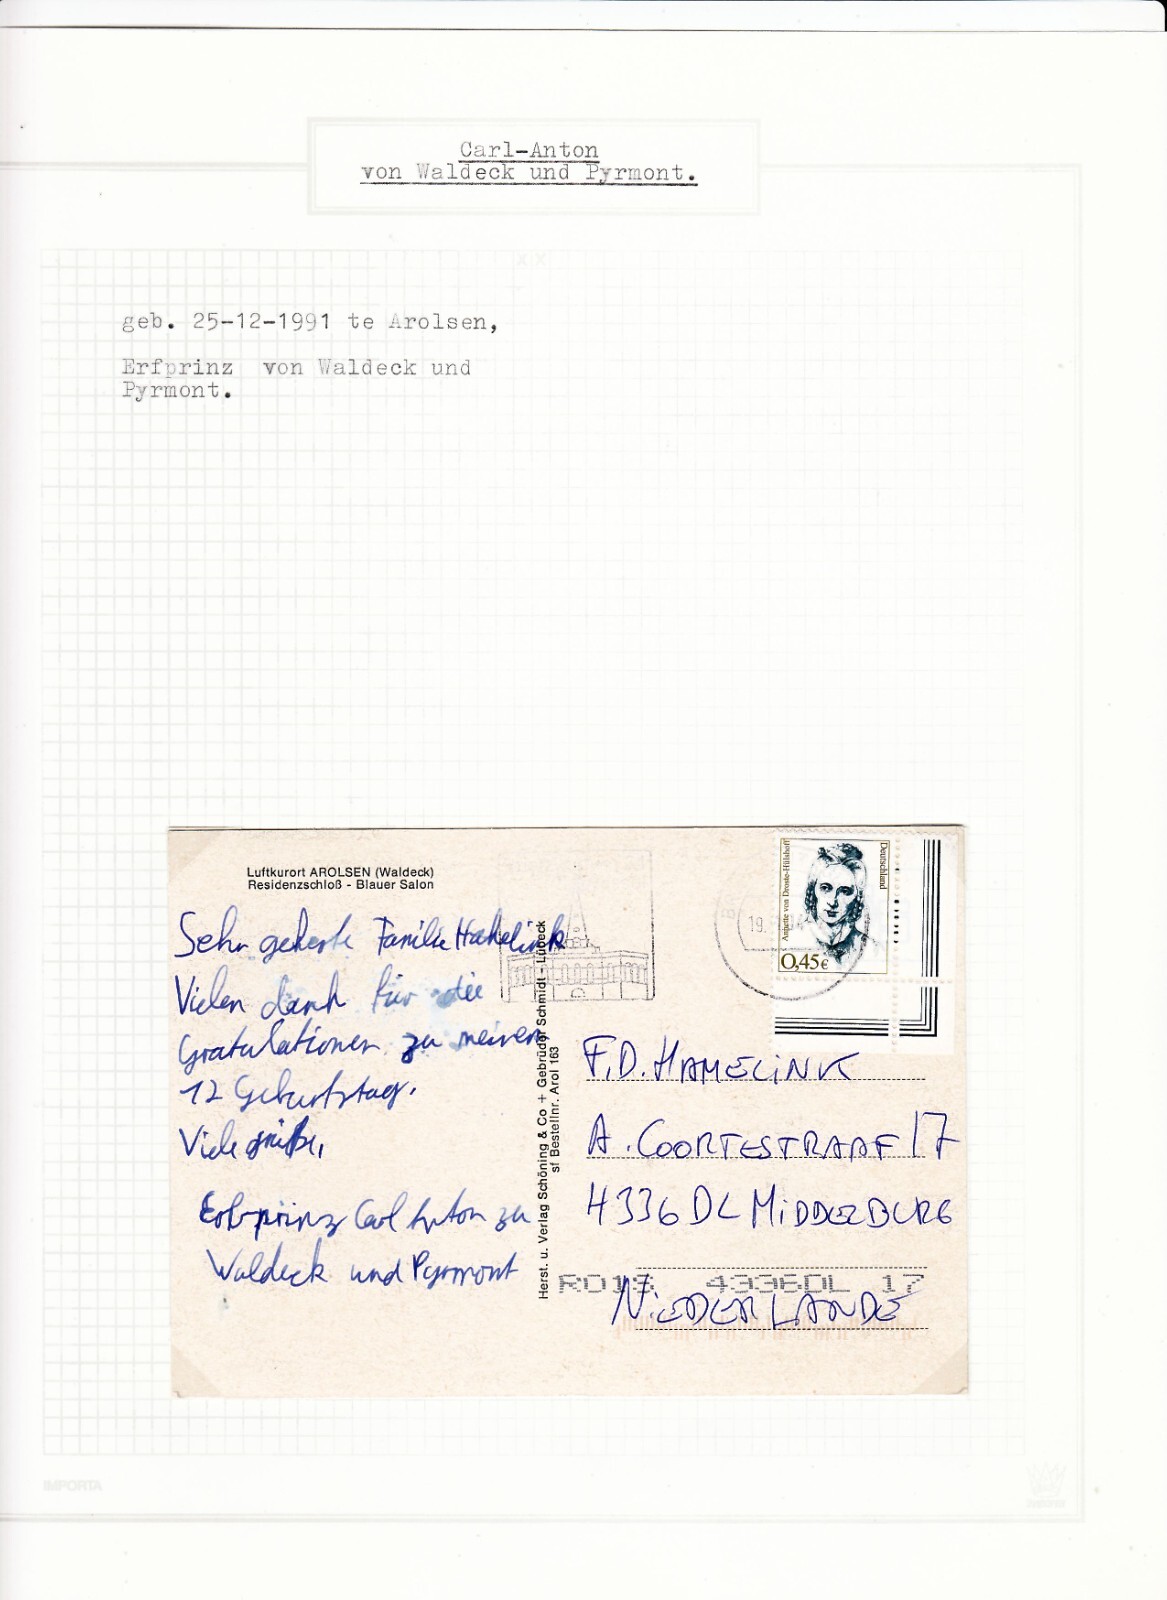 Carl-Anton
von Waldeck und Pyrmont.
geb. 25-12-1991 te Arolsen,
Erfprinz von Waldeck und
Pyrmont.
Luftkurort AROLSEN (Waldeck)
Residenzschloß - Blauer Salon
Sehr geehrte Familie Hamelink
Vielen dank für die
Gratulationen zu meinem
12 Geburtstag.
Viele grüße,
Erbprinz Carl Anton zu
Waldeck und Pyrmont
Herst. u. Verlag Schöning & Co + Gebrüder Schmidt - Lübeck
sf Bestellnr. Arol 163
Annette von Droste-Hülshoff
Deutschland
0,45€
19.
F.D. HAMELINK
A. COORTESTRAAT 17
4336 DL MIDDELBURG
4336DL 17
NIEDERLANDE
IMPORTA